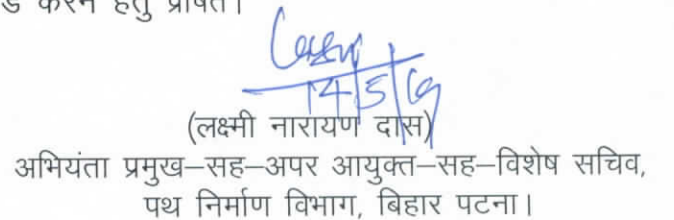 करने हेतु प्रेषित।
14/5/19
(लक्ष्मी नारायण दास)
अभियंता प्रमुख–सह–अपर आयुक्त–सह–विशेष सचिव,
पथ निर्माण विभाग, बिहार पटना।